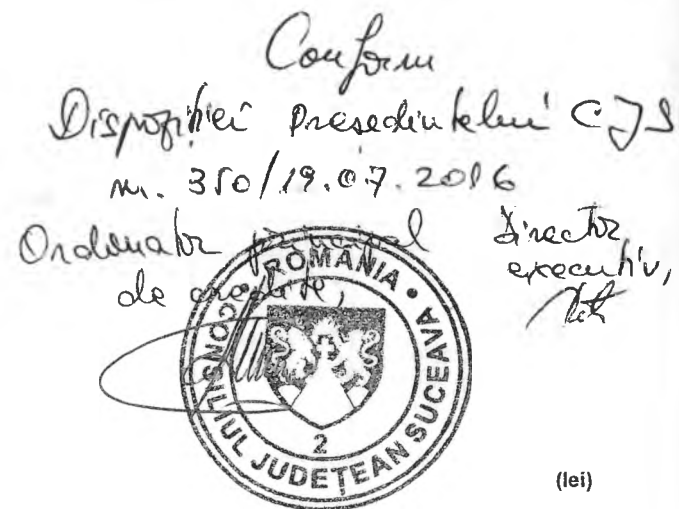 Conform
Dispoziției Președintelui CJS
nr. 350/19.07.2016
Ordonator principal
de credite,
Director
executiv,
ROMANIA
CONSILIUL JUDEȚEAN SUCEAVA
2
(lei)